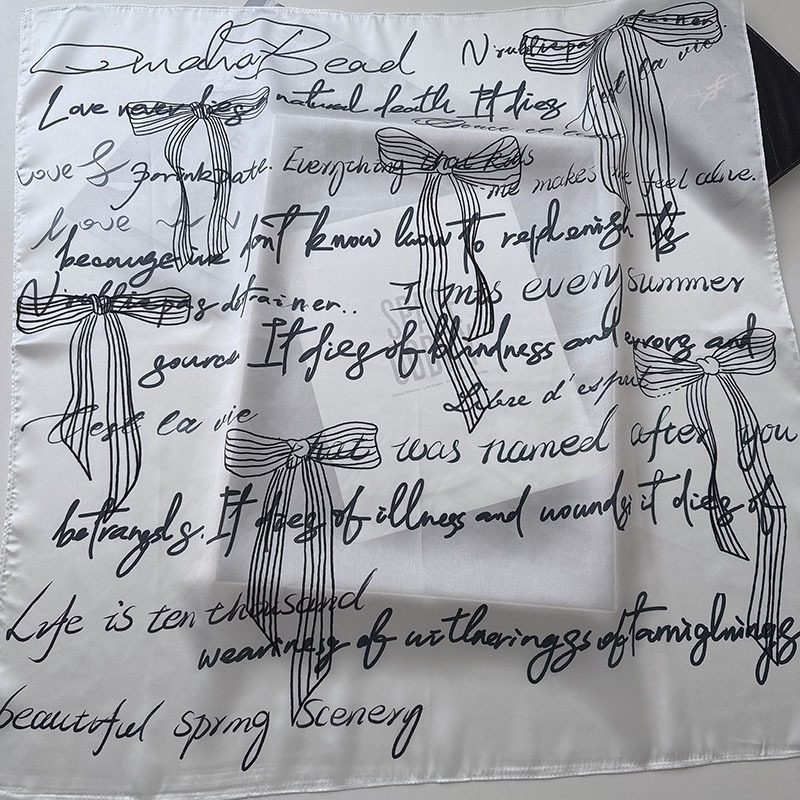 Omaha Bead
N'oublie pas
Love never dies natural death It dies
c'est la vie
Love &
Everything that kills
me makes me feel alive.
Love
because we don't know how to replenish its
N'oublie pas d'entrainer.. I miss every summer
source It dies of blindness and errors and
Libre d'esprit
C'est la vie
that was named after you
betrayals. It dies of illness and wounds it dies of
Life is ten thousand
weariness of witherings of tarnishings
beautiful spring scenery